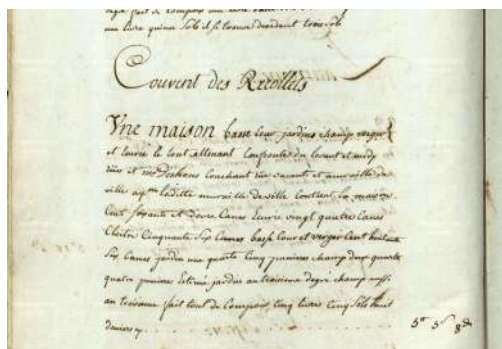 une livre quinze sols et se trouve dessendant trois sols
Couvent des Recollets
Une maison basse Cour jardins champ verger
et Ecurie le tout attenant Confronte du levant et midy
rües et Couchant rüe vacante et muraille de
ville laditte muraille de ville contient la maison
Cent soixante et douze Canes Ecurie vingt quatre Canes
Cloitre Cinquante Six Cannes basse Cour et verger Cent huitante
Six Cannes jardin une quarte Cinq punieres champ deux quarte
quatre punieres Estimé jardin au troisieme degré champ aussi
au troisieme fait tout de Compoix Cinq livres Cinq Sols huit
deniers
5# 5s 8d